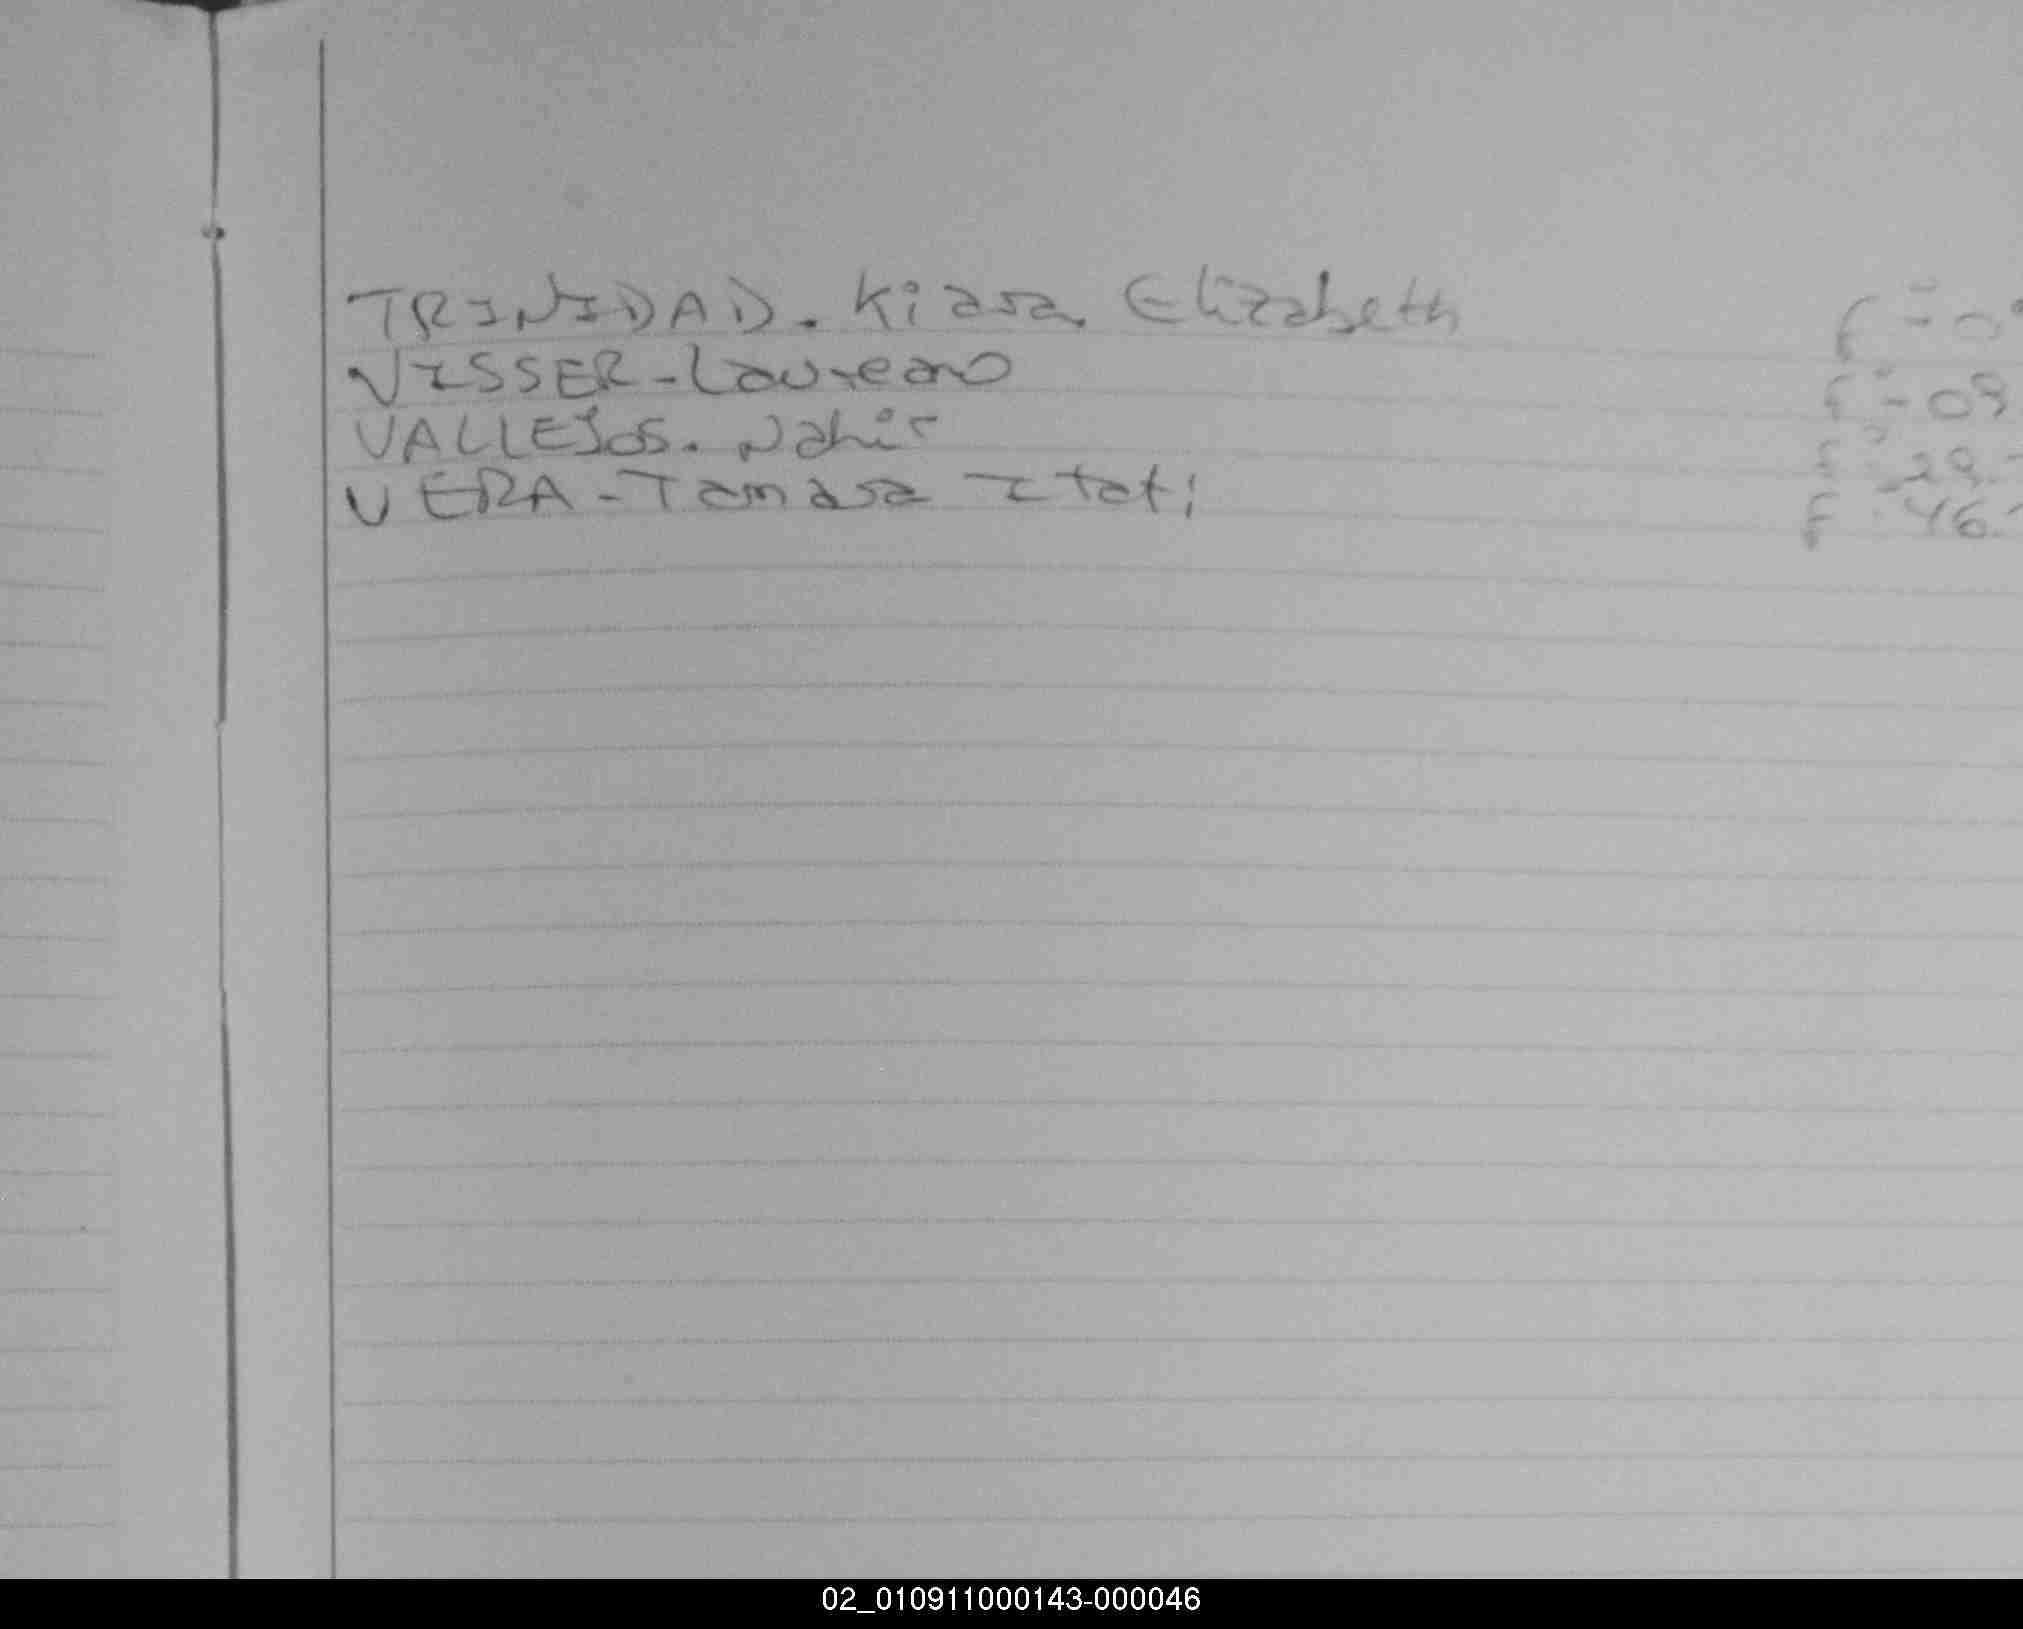 TRINIDAD. Kiara Elizabeth
VISSER - Laureano
VALLEJOS. Nahir
VERA - Tamara Itati
f° - 09
f° 29.
f° 46.
02_010911000143-000046